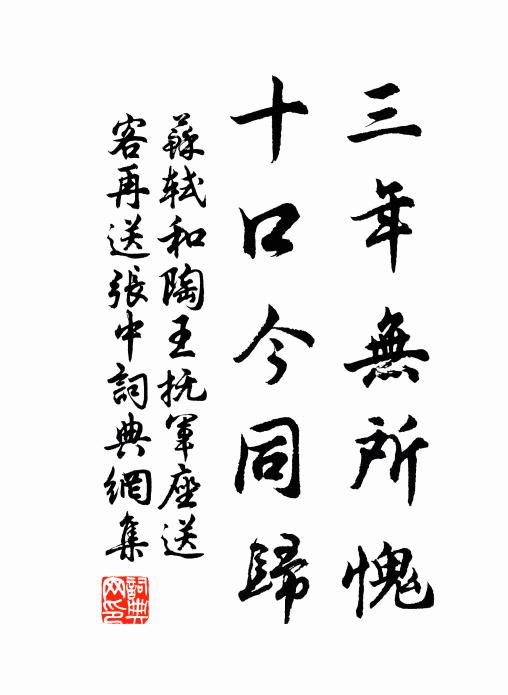 三年無所愧
十口今同歸
蘇軾和陶王抚軍座送
客再送張中詞典網集
詞典网印